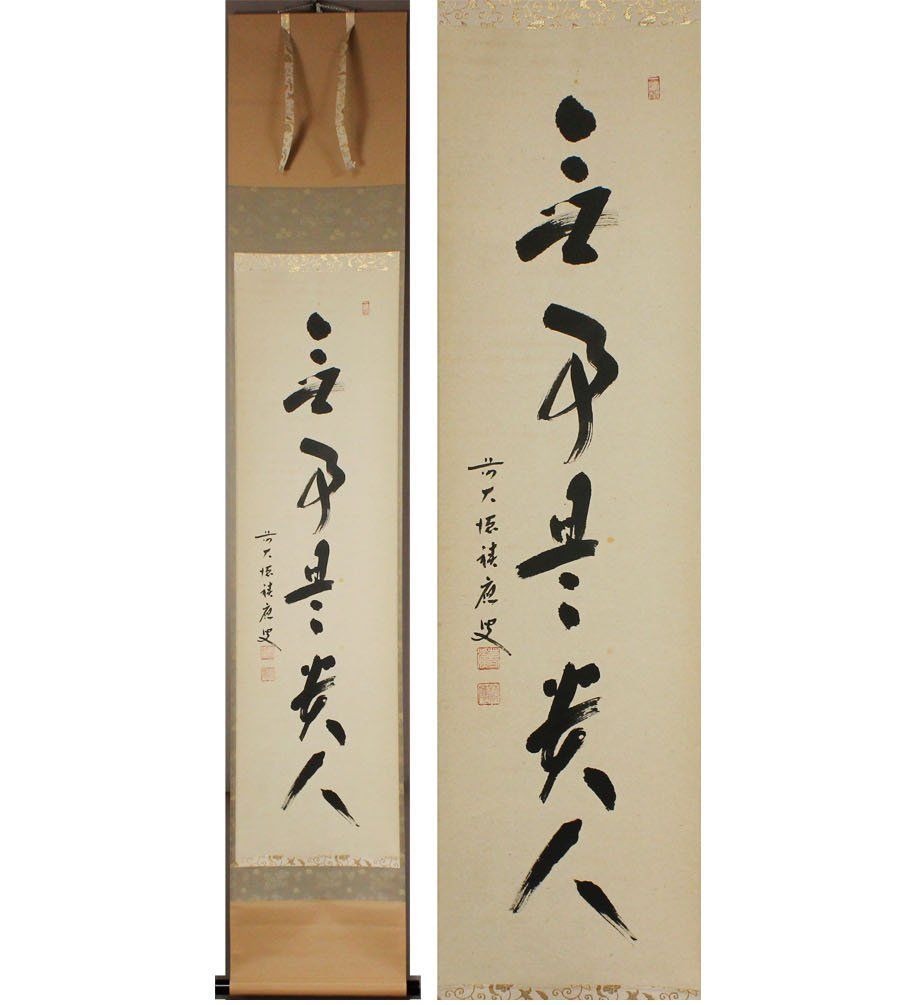 無事是貴人
前大徳積應叟
無事是貴人
前大徳積應叟